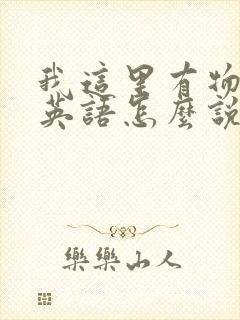 我這里有物
英語怎麼說
樂樂山人